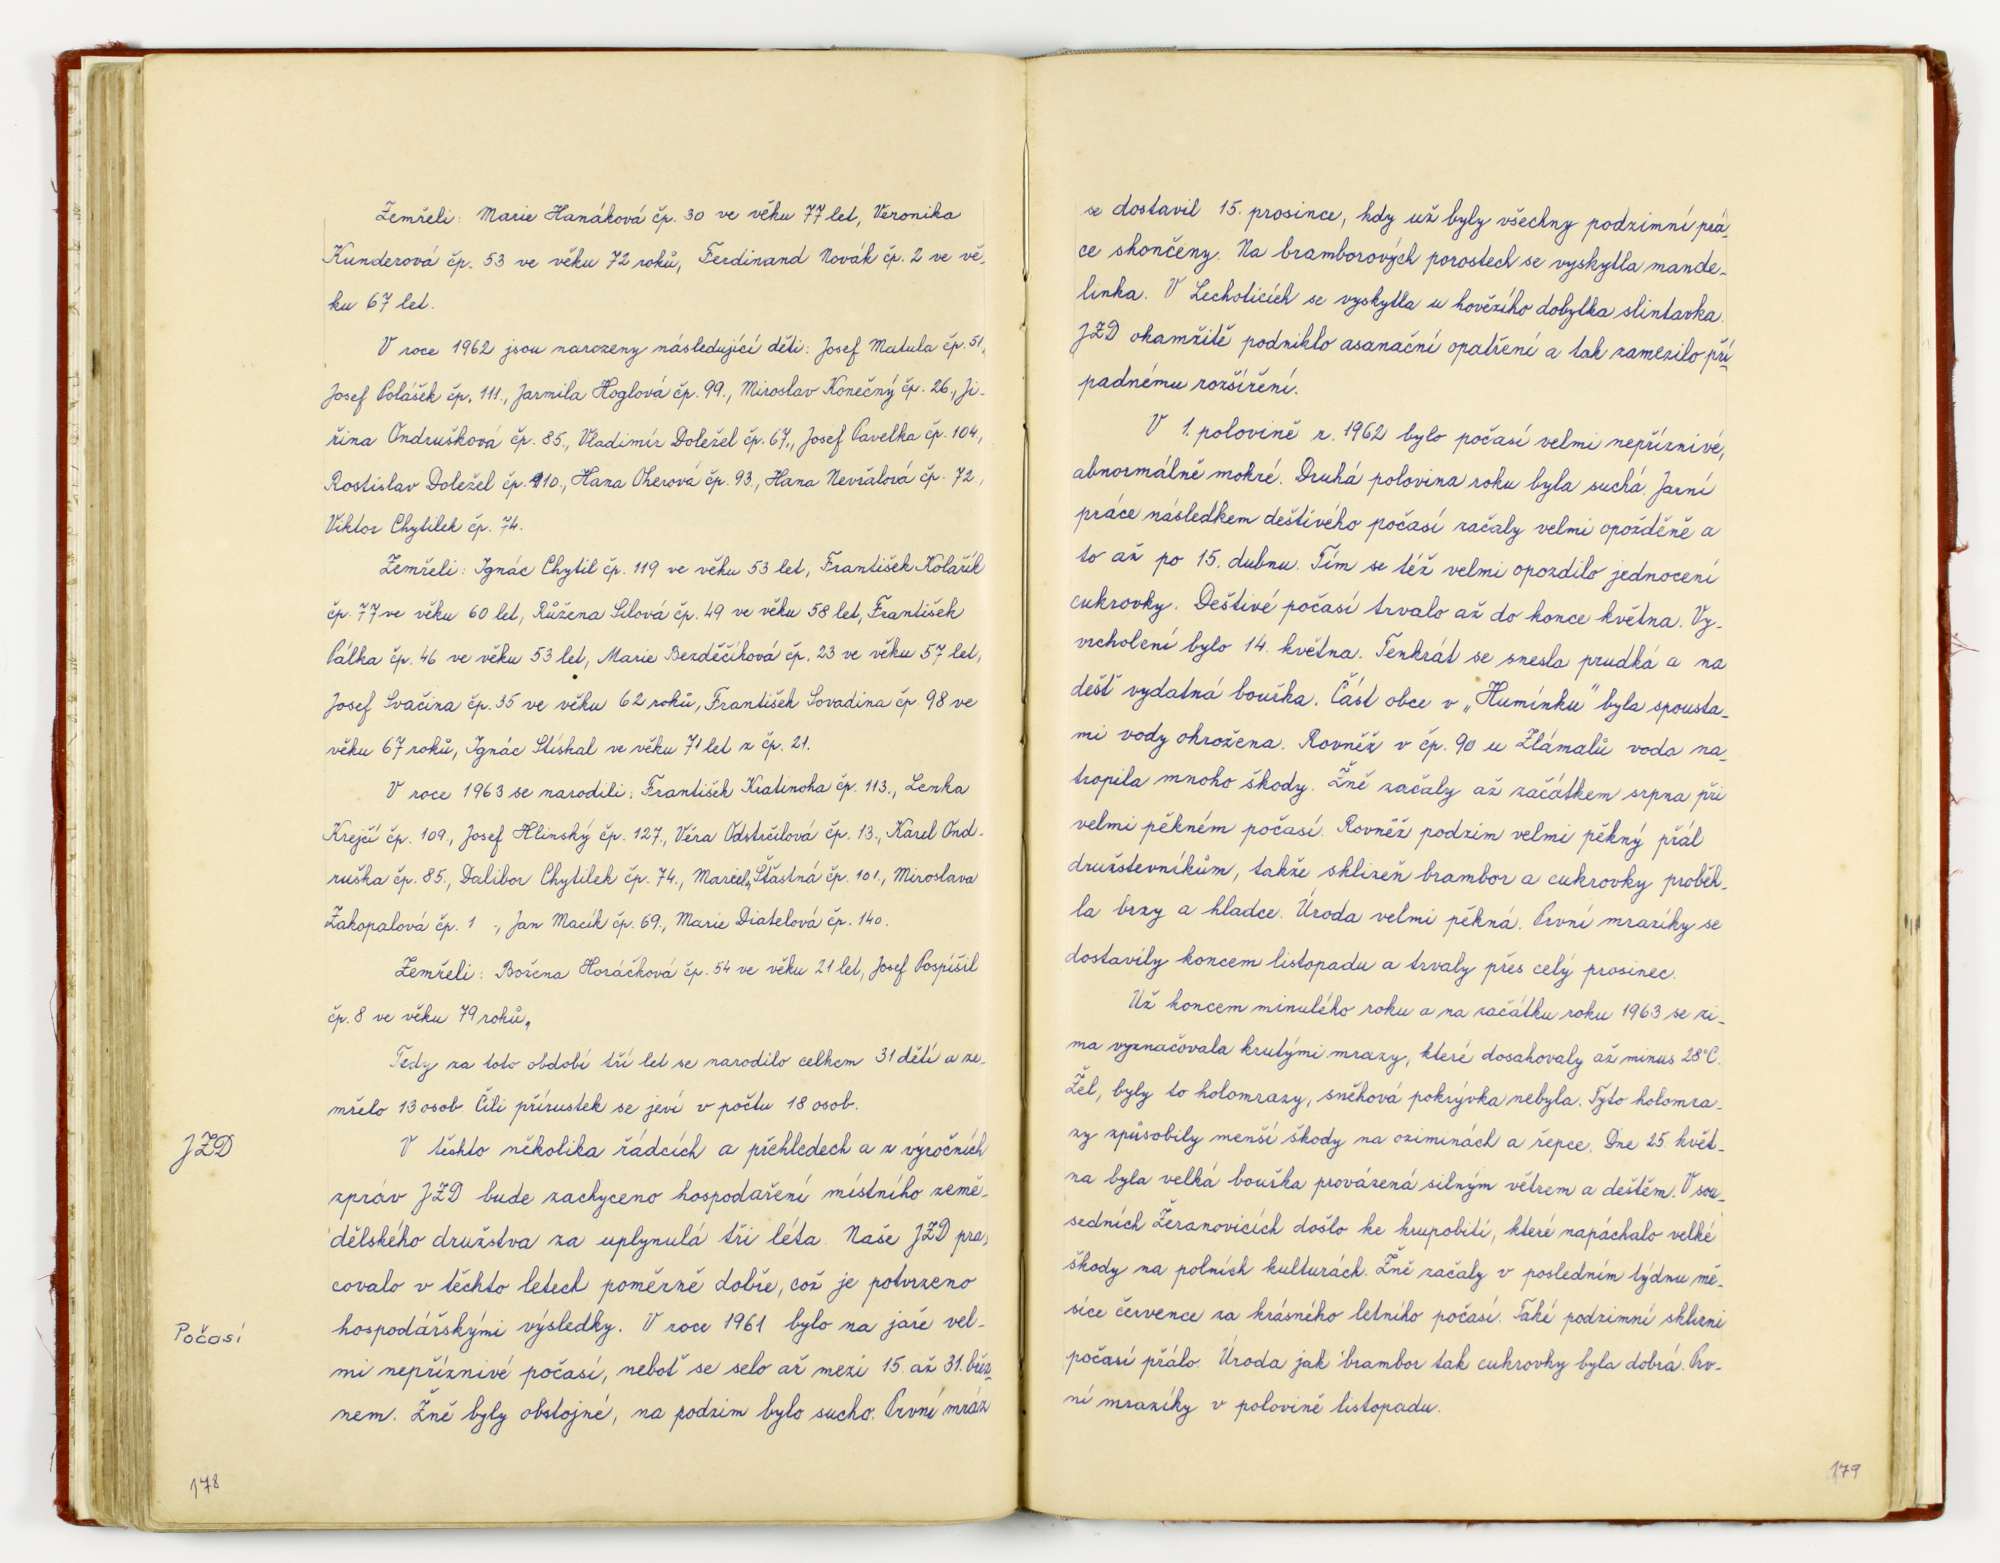 Zemřeli: Marie Hanáková čp. 30 ve věku 77 let, Veronika
Kunderová čp. 53 ve věku 72 roků, Ferdinand Novák čp. 2 ve vě-
ku 67 let.
V roce 1962 jsou narozeny následující děti: Josef Matula čp. 51,
Josef Polášek čp. 111., Jarmila Hoglová čp. 99., Miroslav Konečný čp. 26., Ji-
řina Ondrušková čp. 85., Vladimír Doležel čp. 67., Josef Pavelka čp. 104,
Rostislav Doležel čp. 110., Hana Oherová čp. 93., Hana Nevřalová čp. 72,
Viktor Chytilek čp. 74.
Zemřeli: Ignác Chytil čp. 119 ve věku 53 let, František Kolařík
čp. 77 ve věku 60 let, Růžena Silová čp. 49 ve věku 58 let, František
Pálka čp. 46 ve věku 53 let, Marie Bezděčíková čp. 23 ve věku 57 let,
Josef Svačina čp. 35 ve věku 62 roků, František Sovadina čp 98 ve
věku 67 roků, Ignác Stískal ve věku 71 let z čp. 21.
V roce 1963 se narodili: František Kratinoha čp. 113., Lenka
Krejčí čp. 109., Josef Hlinský čp. 127., Věra Odstrčilová čp. 13., Karel Ond-
ruška čp. 85., Dalibor Chytilek čp. 74., Marcela Šťastná čp. 101., Miroslava
Zakopalová čp. 1 ., Jan Macík čp. 69., Marie Diatelová čp. 140.
Zemřeli: Božena Horáčková čp. 54 ve věku 21 let, Josef Pospíšil
čp. 8 ve věku 79 roků.
Tedy za toto období tří let se narodilo celkem 31 dětí a ze-
mřelo 13 osob. Čili přírustek se jeví v počtu 18 osob.
JZD
V těchto několika řádcích a přehledech a z výročních
zpráv JZD bude zachyceno hospodaření místního země-
dělského družstva za uplynulá tři léta. Naše JZD pra-
covalo v těchto letech poměrně dobře, což je potvrzeno
Počasí
hospodářskými výsledky. V roce 1961 bylo na jaře vel-
mi nepříznivé počasí, neboť se selo až mezi 15. až 31. břez-
nem. Žně byly obstojné, na podzim bylo sucho. První mráz
178
se dostavil 15. prosince, kdy už byly všechny podzimní prá-
ce skončeny. Na bramborových porostech se vyskytla mande-
linka. V Lechoticích se vyskytla u hovězího dobytka slintavka.
JZD okamžitě podniklo asanační opatření a tak zamezilo pří-
padnému rozšíření.
V 1. polovině r. 1962 bylo počasí velmi nepříznivé,
abnormálně mokré. Druhá polovina roku byla suchá. Jarní
práce následkem deštivého počasí začaly velmi opožděně a
to až po 15. dubnu. Tím se též velmi opozdilo jednocení
cukrovky. Deštivé počasí trvalo až do konce května. Vy-
vrcholení bylo 14. května. Tenkrát se snesla prudká a na
déšť vydatná bouřka. Část obce v „Humínku" byla spousta-
mi vody ohrožena. Rovněž v čp. 90 u Zlámalů voda na-
tropila mnoho škody. Žně začaly až začátkem srpna při
velmi pěkném počasí. Rovněž podzim velmi pěkný přál
družstevníkům, takže sklizeň brambor a cukrovky proběh-
la brzy a hladce. Úroda velmi pěkná. První mrazíky se
dostavily koncem listopadu a trvaly přes celý prosinec.
Už koncem minulého roku a na začátku roku 1963 se zi-
ma vyznačovala krutými mrazy, které dosahovaly až minus 28°C.
Žel, byly to holomrazy, sněhová pokrývka nebyla. Tyto holomra-
zy způsobily menší škody na oziminách a řepce. Dne 25. květ-
na byla velká bouřka provázená silným větrem a deštěm. V sou-
sedních Žeranovicích došlo ke krupobití, které napáchalo velké
škody na polních kulturách. Žně začaly v posledním týdnu mě-
síce července za krásného letního počasí. Také podzimní sklizni
počasí přálo. Úroda jak brambor tak cukrovky byla dobrá. Prv-
ní mrazíky v polovině listopadu.
179